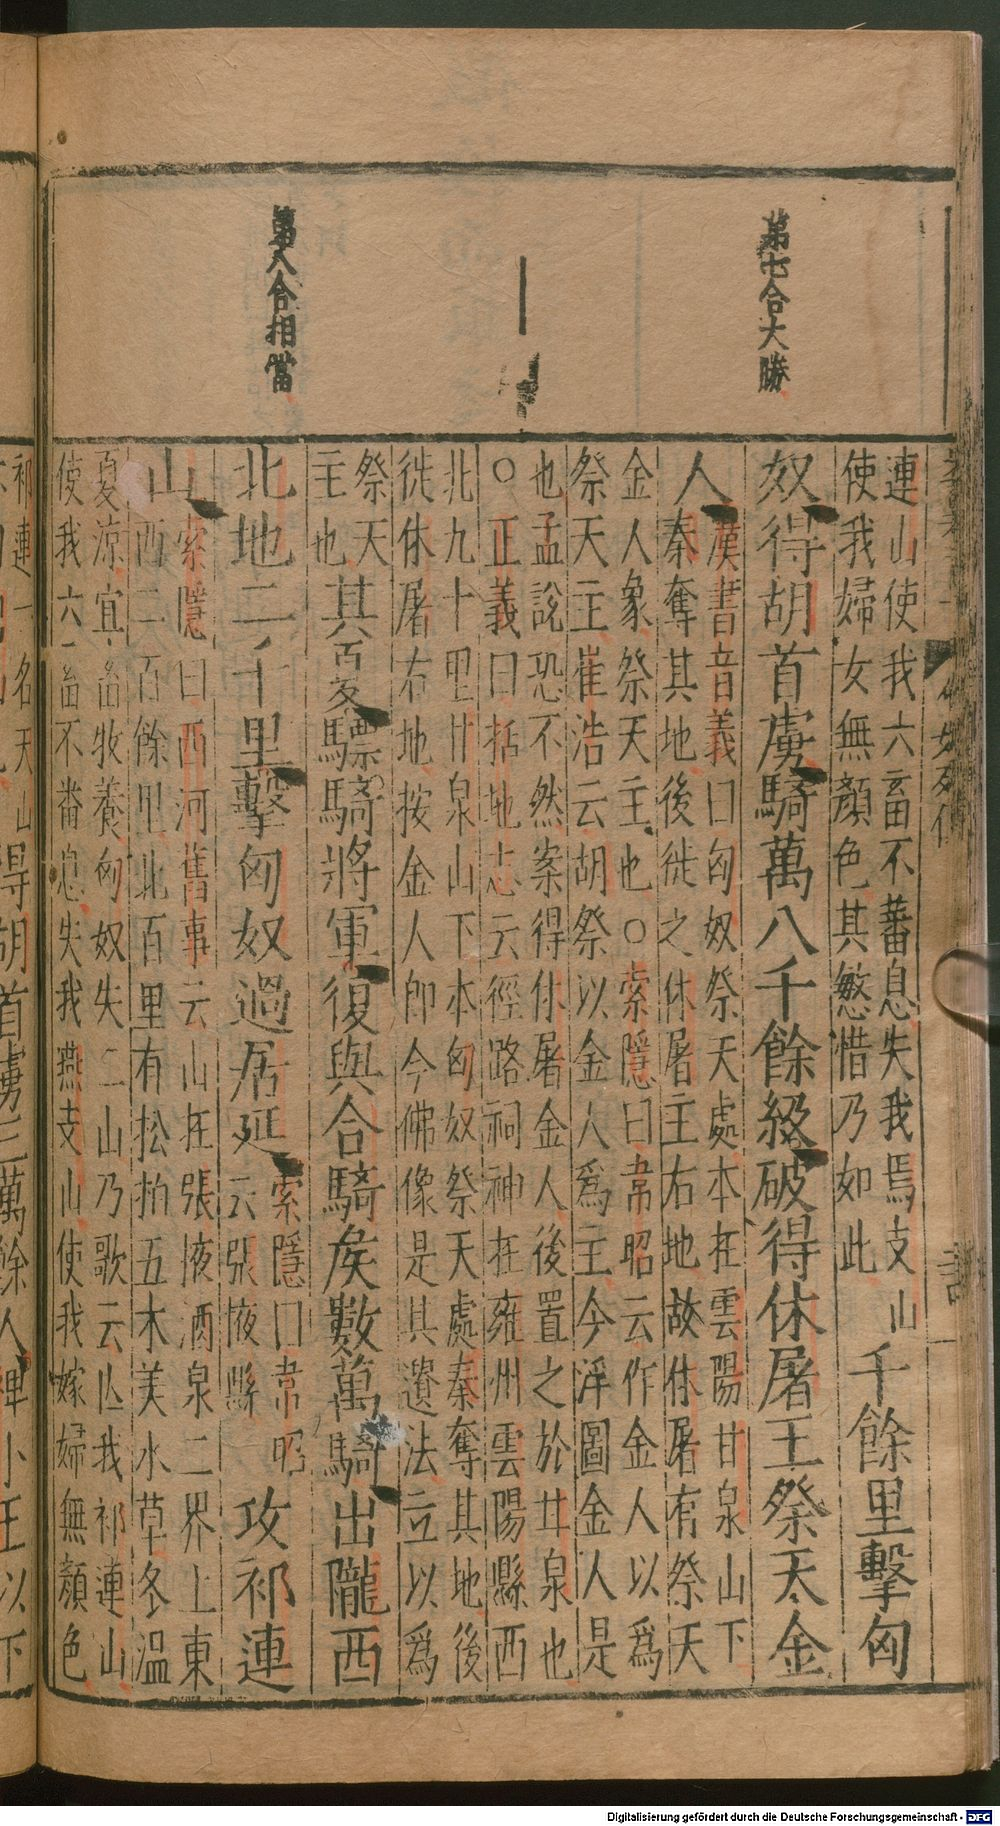 第七合大勝
第八合相當
連山使我六畜不蕃息失我焉支山
使我婦女無顏色其慜惜乃如此
千餘里擊匈
奴得胡首虜騎萬八千餘級破得休屠王祭天金
人
漢書音義曰匈奴祭天處本在雲陽甘泉山下
秦奪其地後徙之休屠王右地故休屠有祭天
金人象祭天主也○索隱曰韋昭云作金人以爲
祭天主崔浩云胡祭以金人爲主今浮圖金人是
也孟說恐不然案得休屠金人後置之於甘泉也
○正義曰括地志云徑路祠神在雍州雲陽縣西
北九十里甘泉山下本匈奴祭天處秦奪其地後
徙休屠右地按金人即今佛像是其遺法立以爲
祭天
主也
其百夏驃騎將軍復與合騎矦數萬騎出隴西
北地二千里擊匈奴過居延
索隱曰韋昭
云張掖縣
攻祁連
山
索隱曰西河舊事云山在張掖酒泉二界上東
西二百餘里北百里有松柏五木美水草冬溫
夏涼宜畜牧養匈奴失二山乃歌云亾我祁連山
使我六畜不蕃息失我燕支山使我嫁婦無顏色
祁連一名天山
得胡首虜三萬餘人裨小王以下
Digitalisierung gefördert durch die Deutsche Forschungsgemeinschaft - DFG